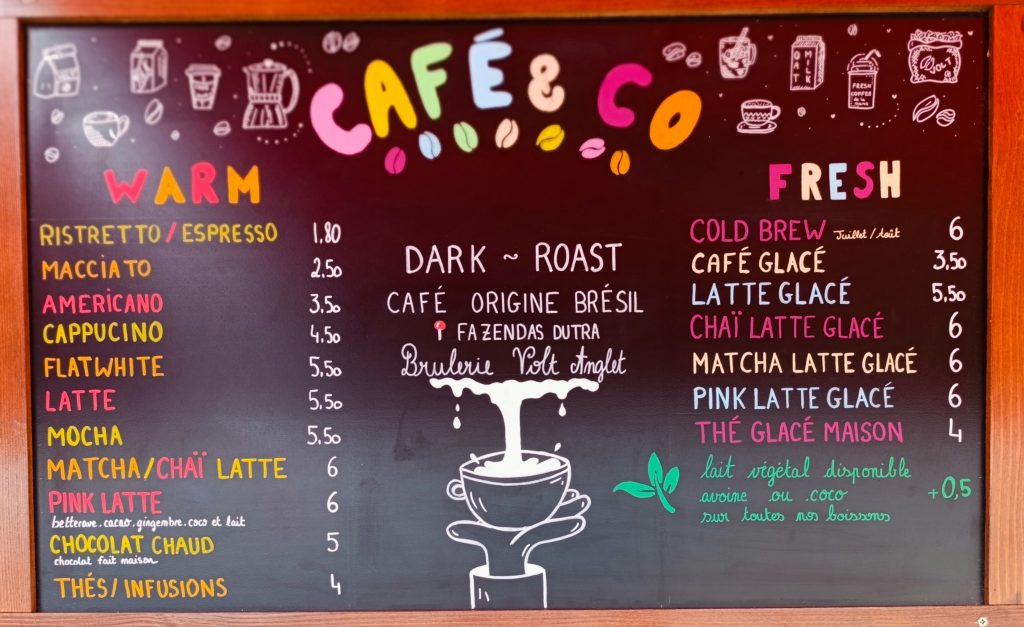 CAFÉ & CO
OAT MILK
FRESH COFFEE de la MAISON
VOLT
WARM
RISTRETTO / ESPRESSO 1,80
MACCIATO 2,50
AMERICANO 3,50
CAPPUCINO 4,50
FLATWHITE 5,50
LATTE 5,50
MOCHA 5,50
MATCHA/CHAÏ LATTE 6
PINK LATTE 6
betterave.cacao.gingembre.coco et lait
CHOCOLAT CHAUD 5
chocolat fait maison
THÉS/INFUSIONS 4
DARK ~ ROAST
CAFÉ ORIGINE BRÉSIL
FAZENDAS DUTRA
Brulerie Volt Anglet
FRESH
COLD BREW Juillet / Août 6
CAFÉ GLACÉ 3,50
LATTE GLACÉ 5,50
CHAÏ LATTE GLACÉ 6
MATCHA LATTE GLACÉ 6
PINK LATTE GLACÉ 6
THÉ GLACÉ MAISON 4
lait végétal disponible
avoine ou coco +0,5
sur toutes nos boissons